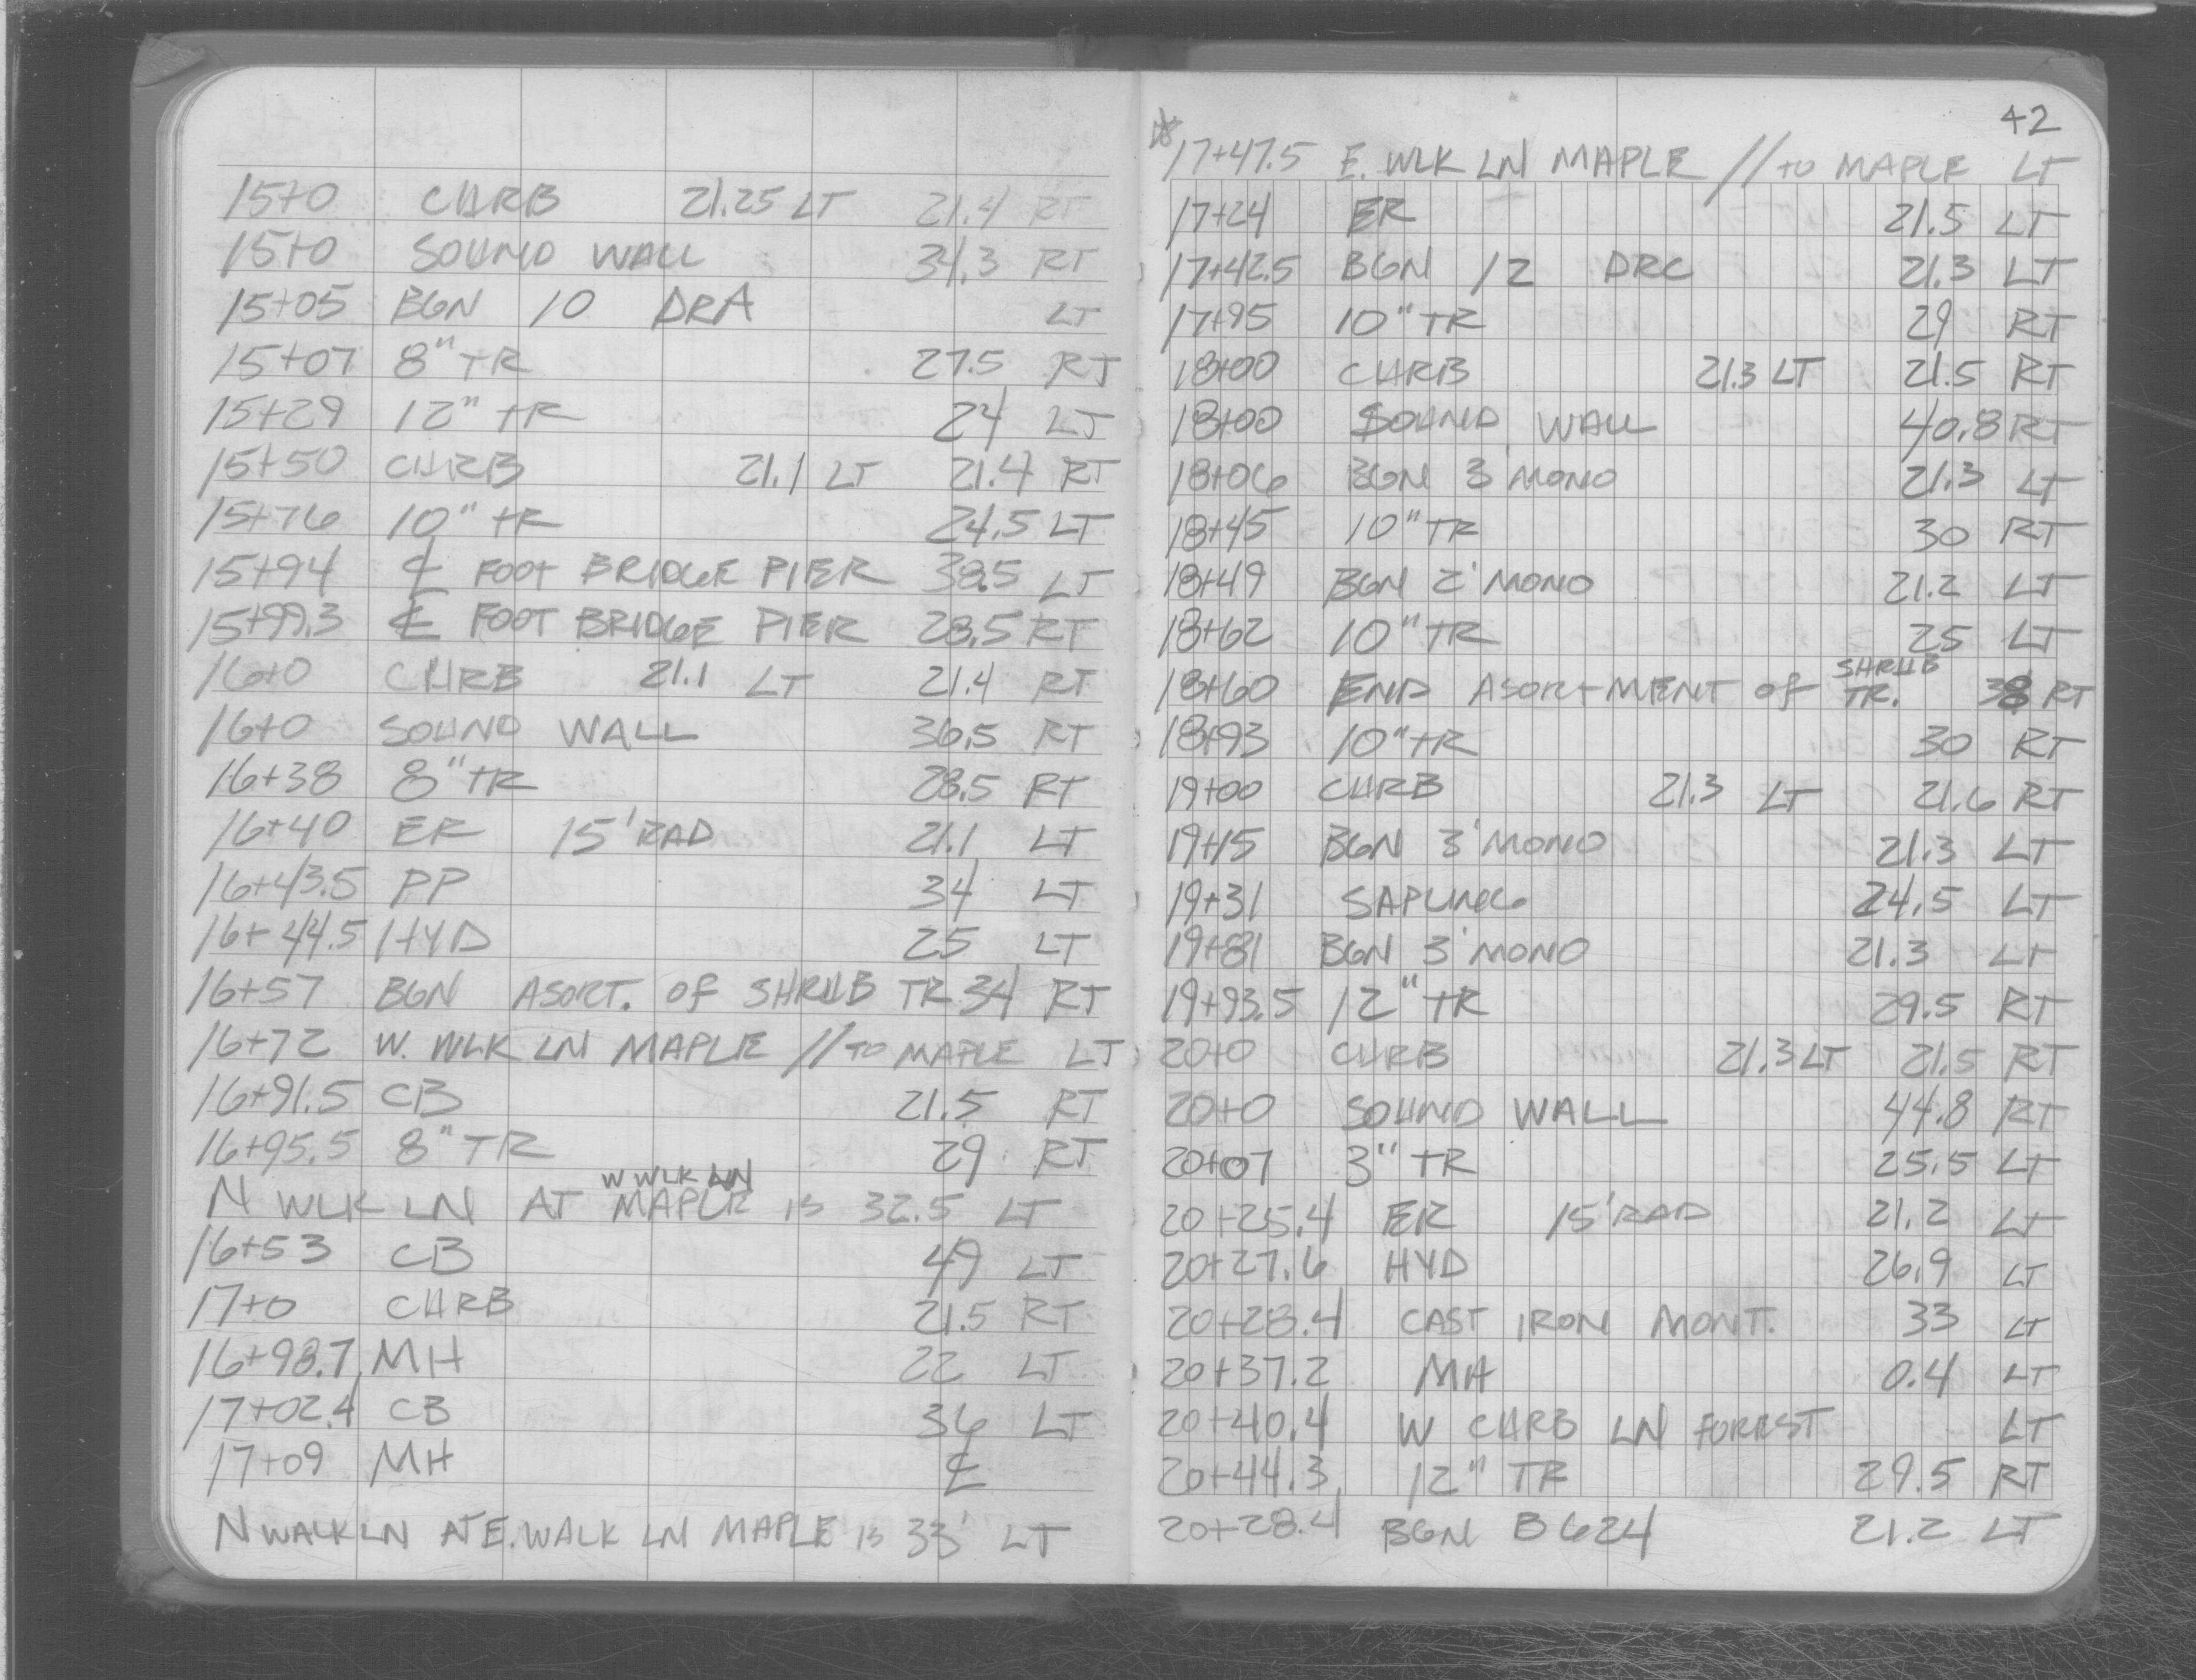 15+0 CURB 21.25 LT 21.4 RT
15+0 SOUND WALL 34.3 RT
15+05 BGN 10 DRA LT
15+07 8" TR 27.5 RT
15+29 12" TR 24 LT
15+50 CURB 21.1 LT 21.4 RT
15+76 10" TR 24.5 LT
15+94 ℄ FOOT BRIDGE PIER 38.5 LT
15+99.3 ℄ FOOT BRIDGE PIER 28.5 RT
16+0 CURB 21.1 LT 21.4 RT
16+0 SOUND WALL 36.5 RT
16+38 8" TR 28.5 RT
16+40 ER 15' RAD 21.1 LT
16+43.5 PP 34 LT
16+44.5 HYD 25 LT
16+57 BGN ASORT. OF SHRUB TR 34 RT
16+72 W. WLK LN MAPLE // TO MAPLE LT
16+91.5 CB 21.5 RT
16+95.5 8" TR 29 RT
W WLK LN
N WLK LN AT MAPLE IS 32.5 LT
16+53 CB 49 LT
17+0 CURB 21.5 RT
16+98.7 MH 22 LT
17+02.4 CB 36 LT
17+09 MH ℄
N WALK LN AT E. WALK LN MAPLE IS 33' LT
42
17+47.5 E. WLK LN MAPLE // TO MAPLE LT
17+24 ER 21.5 LT
17+42.5 BGN 12 DRC 21.3 LT
17+95 10" TR 29 RT
18+00 CURB 21.3 LT 21.5 RT
18+00 SOUND WALL 40.8 RT
18+06 BGN 3' MONO 21.3 LT
18+45 10" TR 30 RT
18+49 BGN 2' MONO 21.2 LT
18+62 10" TR 25 LT
SHRUB
18+60 END ASORTMENT OF TR. 38 RT
18+93 10" TR 30 RT
19+00 CURB 21.3 LT 21.6 RT
19+15 BGN 3' MONO 21.3 LT
19+31 SAPLING 24.5 LT
19+81 BGN 3' MONO 21.3 LT
19+93.5 12" TR 29.5 RT
20+0 CURB 21.3 LT 21.5 RT
20+0 SOUND WALL 44.8 RT
20+07 3" TR 25.5 LT
20+25.4 ER 15' RAD 21.2 LT
20+27.6 HYD 26.9 LT
20+28.4 CAST IRON MONT. 33 LT
20+37.2 MH 0.4 LT
20+40.4 W CURB LN FORREST LT
20+44.3 12" TR 29.5 RT
20+28.4 BGN B624 21.2 LT